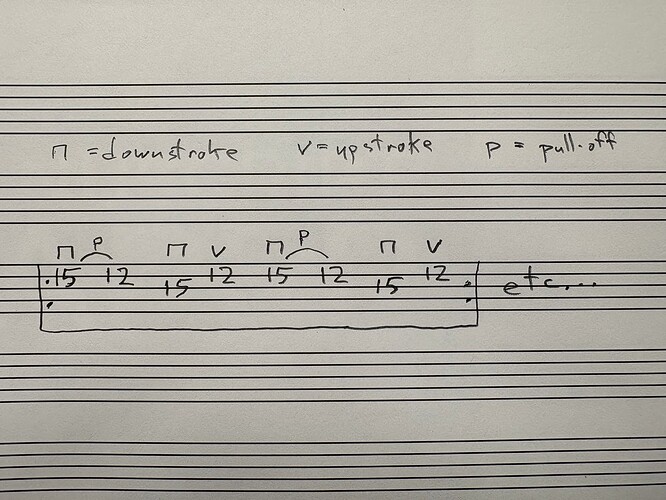 ⊓ = downstroke V = upstroke P = pull-off
⊓ P ⊓ V ⊓ P ⊓ V
15 12 15 12 15 12 15 12 etc...